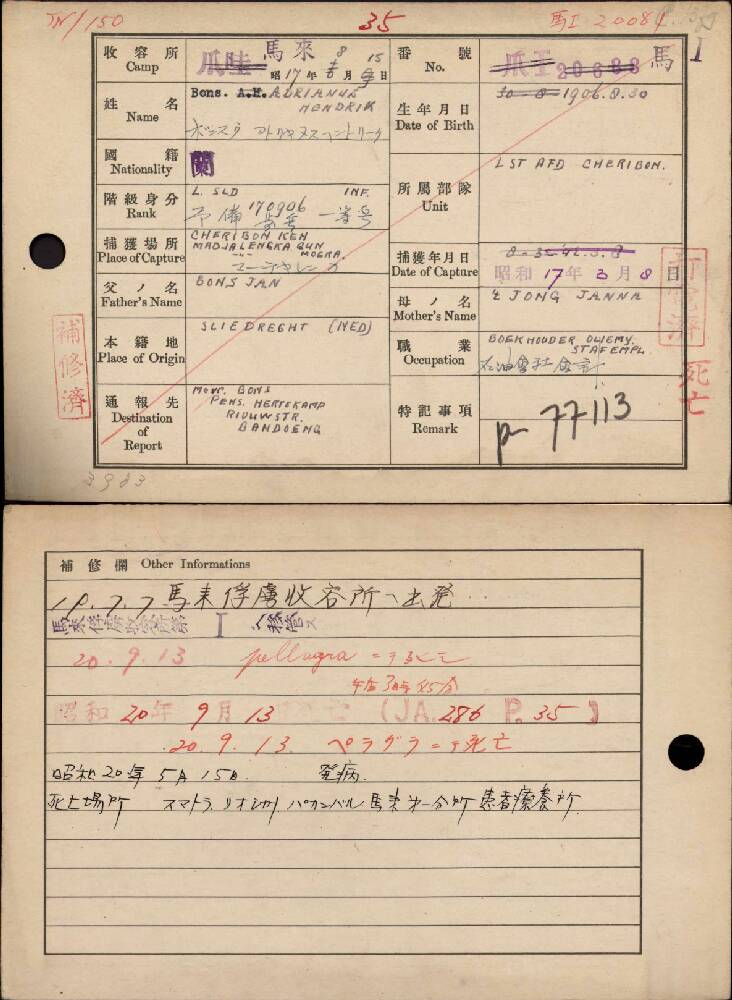 JN/150
35
馬I 20084
收容所 Camp
爪哇 馬來 8 15
昭17年 月 日
番號 No.
爪I 20688 馬 I
姓名 Name
Bons. A.H. ADRIANUS
HENDRIK
生年月日 Date of Birth
30-8-1906.8.30
國籍 Nationality
蘭
所属部隊 Unit
LST AFD CHERIBON.
階級身分 Rank
L. SLD INF.
170906
予備
捕獲場所 Place of Capture
CHERIBON KEN
MADJALENGKA GUN
捕獲年月日 Date of Capture
昭和17年3月8日
父ノ名 Father's Name
BONS JAN
母ノ名 Mother's Name
'T JONG JANNA
本籍地 Place of Origin
SLIEDREGHT (NED)
職業 Occupation
BOEKHOUDER OLIEMY.
STAFEMPL.
石油會社会計
通報先 Destination of Report
Mevr. BONS
PENS. HERTSKAMP
RIOUWSTR.
BANDOENG
特記事項 Remark
77113
補修濟
死亡
3983
補修欄 Other Informations
19.7.7 馬来俘虜收容所ヘ出発
馬來俘虜收容所第 I ヘ移管ス
20.9.13 pellagra ニテ死亡
午后3時45分
昭和20年9月13 (JA.286 P.35)
20.9.13. ペラグラニテ死亡
昭和20年5月15日 発病
死亡場所 スマトラ リオ州 パカンバル 馬来第一分所患者療養所